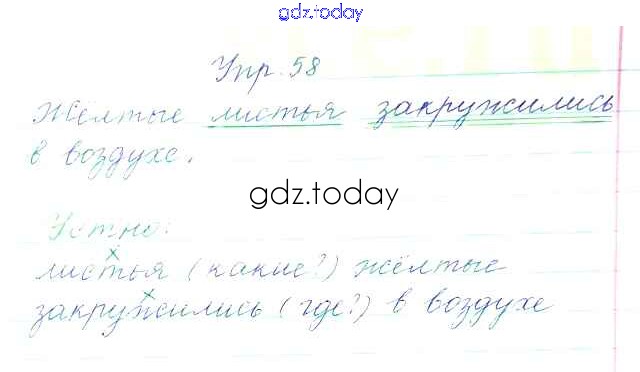 gdz.today
Упр. 58
Жёлтые листья закружились
в воздухе.
gdz.today
Устно:
листья (какие?) жёлтые
закружились (где?) в воздухе